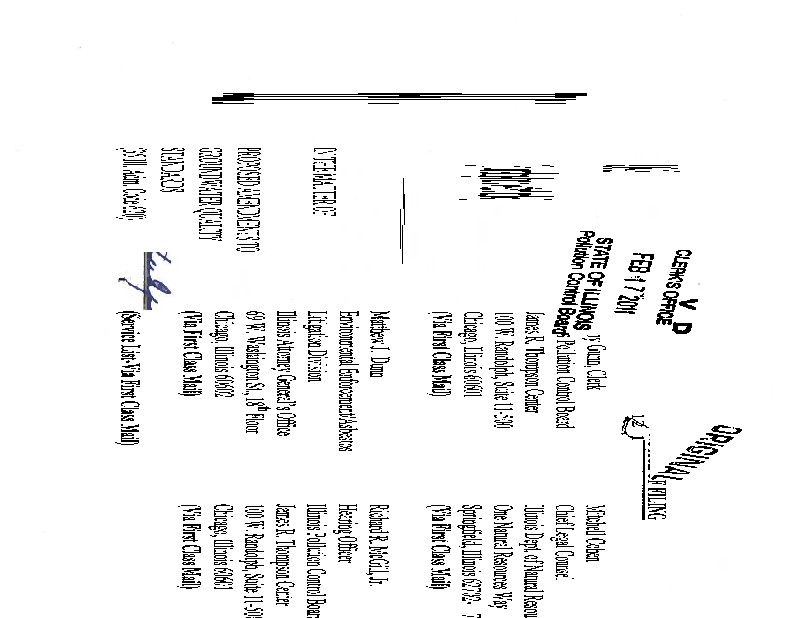 CLERK'S OFFICE
FEB 17 2011
STATE OF ILLINOIS
Pollution Control Board
ORIGINAL
OF FILING
IN THE MATTER OF:
PROPOSED AMENDMENTS TO
GROUNDWATER QUALITY
STANDARDS
Clerk
Pollution Control Board
James R. Thompson Center
100 W. Randolph, Suite 11-500
Chicago, Illinois 60601
(Via First Class Mail)
Mitchell Cohen
Chief Legal Counsel
Illinois Dept. of Natural Resou
One Natural Resources Way
Springfield, Illinois 62702-
(Via First Class Mail)
Matthew J. Dunn
Environmental Enforcement/Asbestos
Litigation Division
Illinois Attorney General's Office
69 W. Washington St., 18th Floor
Chicago, Illinois 60602
(Via First Class Mail)
Richard R. McGill, Jr.
Hearing Officer
Illinois Pollution Control Boar
James R. Thompson Center
100 W. Randolph, Suite 11-50
Chicago, Illinois 60601
(Via First Class Mail)
(Service List-Via First Class Mail)